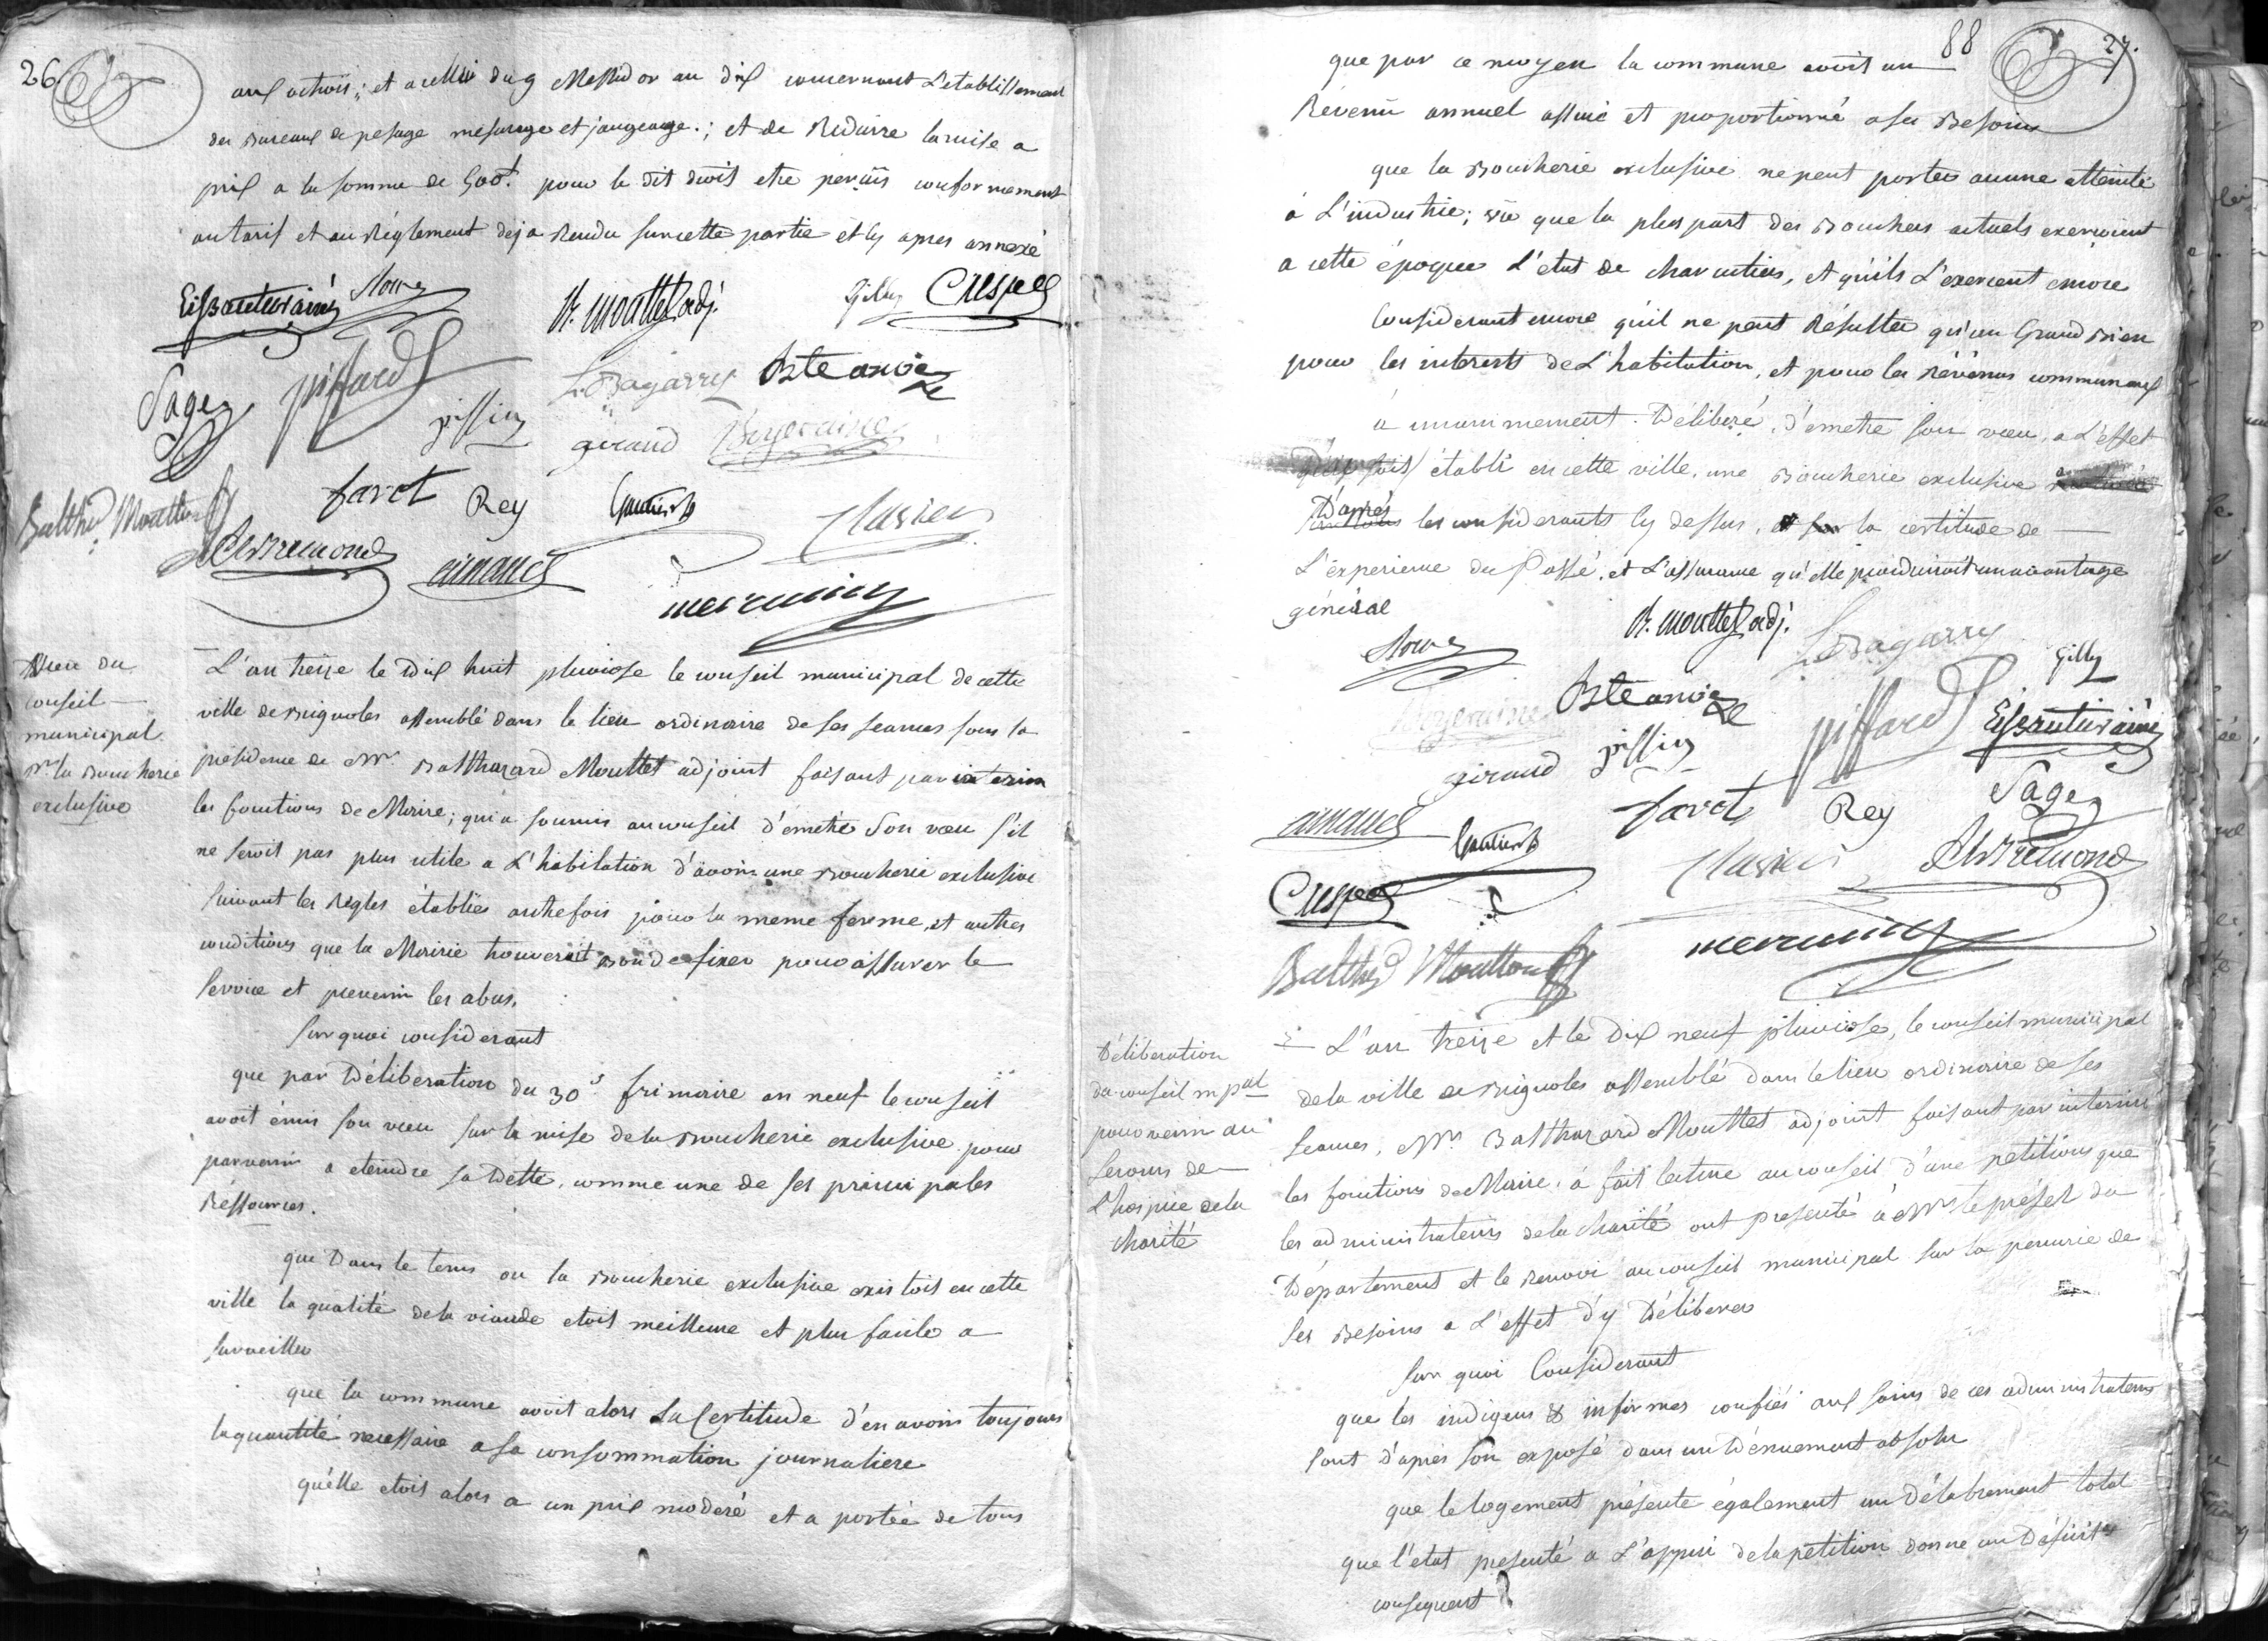 26
aux octrois; et a celui du 9 Messidor an dix concernant L'etablissement
des Bureaux de pesage mesurage et jaugeage.; et de Reduire la mise a
prix a la somme de 500f. pour le dit droit etre perçûs conformement
au tarif et au Réglement deja Rendu sur cette partie et cy apres annexé
Eissautier ainé
B. Mouttet adj.
Gilly
Crespel
Sage
piffard
L. Bagarry
pissin
giraud
favot
Rey
Gautier
Balthd Moutton
Clavier
arnaud
Vœu du
conseil
municipal
pr la Boucherie
exclusive
L'an treize le Dix huit pluviose le conseil municipal de cette
ville de Brignoles assemblé dans le lieu ordinaire de ses seances sous la
présidence de Mr. Balthazard Mouttet adjoint faisant par interim
les fonctions de Maire; qui a soumis au conseil d'emetre Son vœu s'il
ne seroit pas plus utile a L'habitation d'avoir une Boucherie exclusive
suivant les Regles établies autrefois pour la meme ferme, et autres
conditions que la Mairie trouverait Bon de fixer pour assurer le
service et prevenir les abus.
sur quoi considerant
que par Déliberation du 30 frimaire an neuf le conseil
avoit émis son vœu sur la mise de la Boucherie exclusive pour
parvenir a eteindre sa Dette, comme une de ses principales
Ressources.
que Dans le tems ou la Boucherie exclusive existoit en cette
ville la qualité de la viande etoit meilleure et plus facile a
surveiller
que la commune avoit alors La Certitude d'en avoir toujours
la quantité necessaire a sa consommation journaliere
qu'elle etoit alors a un prix moderé et a portée de tous
88
27.
que par ce moyen la commune avoit un
Revenu annuel assuré et proportionné a ses Besoins
que la Boucherie exclusive ne peut porter aucune atteinte
à L'industrie; vû que la plus part des Bouchers actuels exerçoient
a cette époque L'etat de charcutiers, et qu'ils L'exercent encore
Considerant encore qu'il ne peut Résulter qu'un Grand Bien
pour les interets de L'habitation, et pour les révénus communaux
à unanimement Délibéré, d'emetre son vœu, a L'effet
soit établi en cette ville, une Boucherie exclusive
D'après les considerants cy dessus, la certitude de
L'éxperience du Passé, et L'assurance qu'elle produiroit un avantage
général
B. Mouttet adj.
L. Bagarry
Gilly
piffard
Eissautier ainé
giraud
pissin
Sage
arnaud
favot
Rey
Gautier
Clavier
Crespel
Balthd Moutton
Déliberation
du conseil mpal
pour venir au
secours de
L'hospice de la
charité
L'an treize et le Dix neuf pluviose, le conseil municipal
de la ville de Brignoles assemblé dans le lieu ordinaire de ses
seances, Mr. Balthazard Mouttet adjoint faisant par interim
les fonctions de Maire, à fait lecture au conseil d'une petition que
les administrateurs de la charité ont presenté à Mr le préfet du
Département et le Renvoi au conseil municipal sur la penurie de
ses Besoins a L'effet d'y Déliberer
sur quoi Considerant
que les indigens & infirmes confiés aux soins de ces administrateurs
sont d'apres son exposé dans un Dénuement absolu
que le logement présente également un Délabrement total
que l'état presenté a L'appui de la petition donne un Déficit
consequent